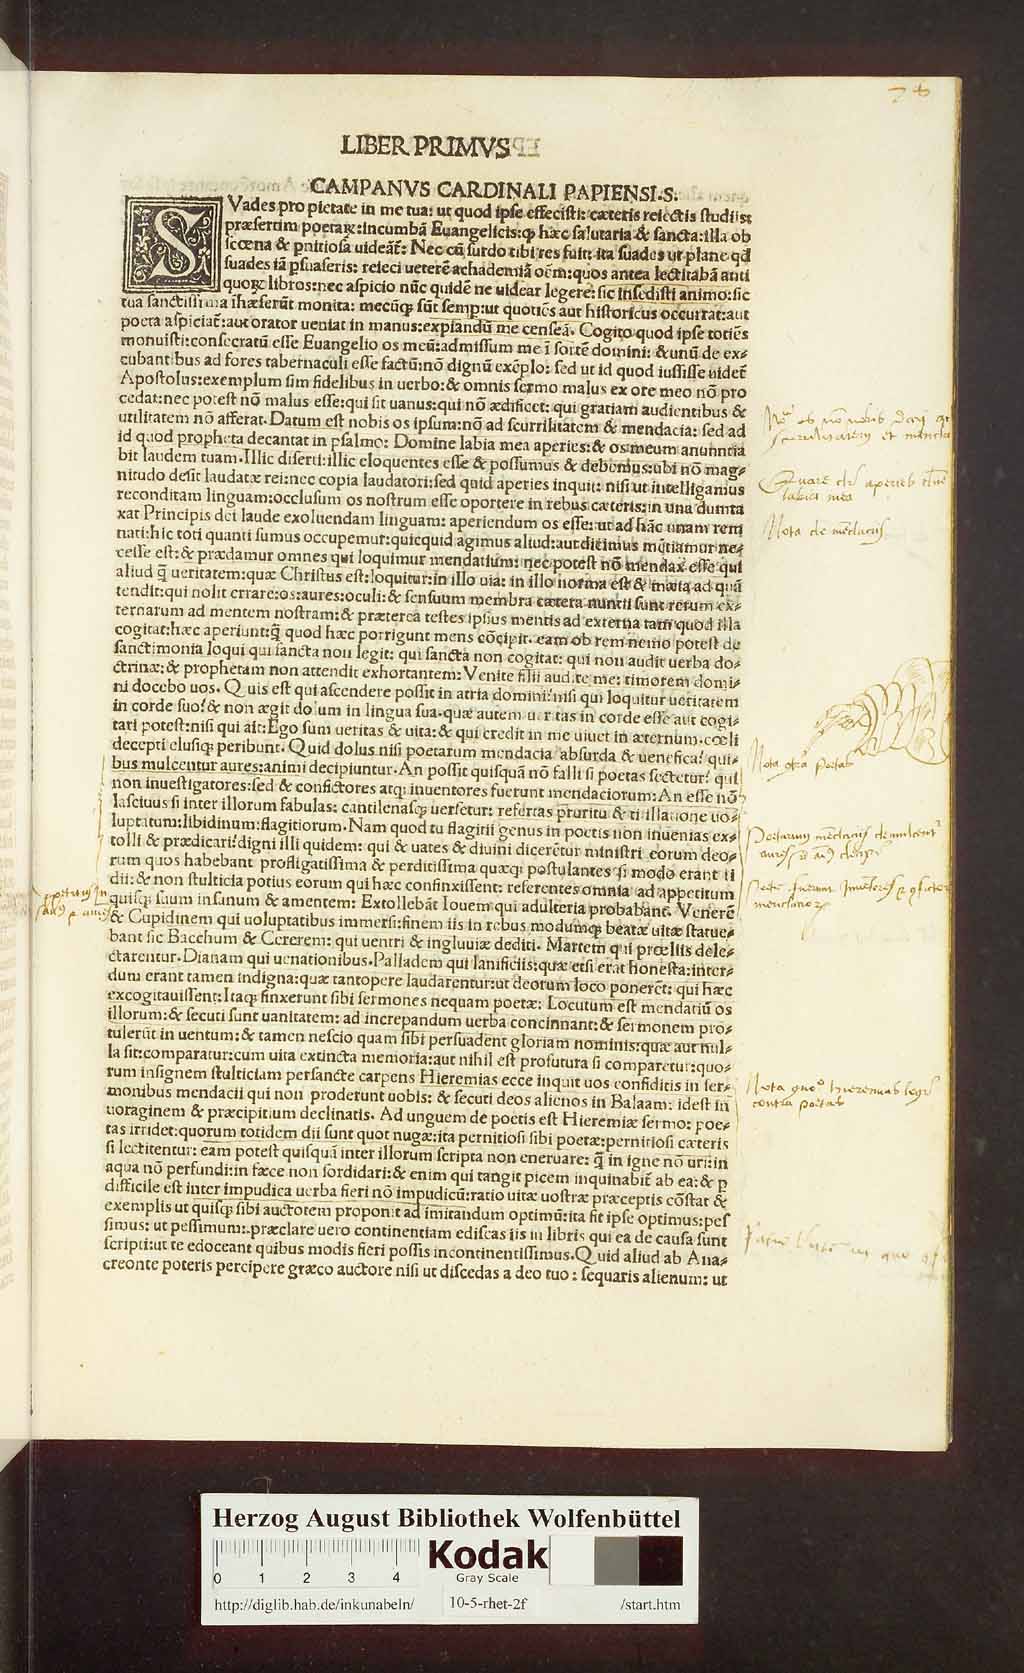 LIBER PRIMVS
CAMPANVS CARDINALI PAPIENSI.S.
SVades pro pietate in me tua: ut quod ipse effecisti: cæteris reiectis studiis:
præsertim poetarꝝ: incumbā Euangelicis: ꝙ hæc salutaria & sancta: illa ob
scœna & pnitiosa uideāt: Nec cū surdo tibi res fuit: ita suades ut plane qd
suades iā psuaseris: reieci ueterē achademiā oēm: quos antea lectitabā anti
quorꝝ libros: nec aspicio nūc quidē ne uidear legere: sic insedisti animo: sic
tua sanctissima ihæserūt monita: mecūqꝫ sūt semp: ut quotiēs aut historicus occurrat: aut
poeta aspiciat: aut orator ueniat in manus: expiandū me censeā. Cogito quod ipse totiēs
monuisti: consecratū esse Euangelio os meū: admissum me ī sortē domini: & unū de ex-
cubantibus ad fores tabernaculi esse factū: nō dignū exēplo: sed ut id quod iussisse uidet̄
Apostolus: exemplum sim fidelibus in uerbo: & omnis sermo malus ex ore meo nō pro
cedat: nec potest nō malus esse: qui sit uanus: qui nō ædificet: qui gratiam audientibus &
utilitatem nō afferat. Datum est nobis os ipsum: nō ad scurrilitatem & mendacia: sed ad
id quod propheta decantat in psalmo: Domine labia mea aperies: & os meum anuntia
bit laudem tuam. Illic diserti: illic eloquentes esse & possumus & debemus: ubi nō mag-
nitudo desit laudatæ rei: nec copia laudatori: sed quid aperies inquit: nisi ut intelligamus
reconditam linguam: occlusum os nostrum esse oportere in rebus cæteris: in una dumta
xat Principis dei laude exoluendam linguam: aperiendum os esse: ut ad hāc unam rem
nati: hic toti quanti sumus occupemur: quicquid agimus aliud: aut dicimus mētiamur ne-
cesse est: & prædamur omnes qui loquimur mendatium: nec potest nō mendax esse qui
aliud q̄ ueritatem: quæ Christus est: loquitur: in illo uia: in illo norma est & mæta ad quā
tendit: qui nolit errare: os: aures: oculi: & sensuum membra cætera nuntii sunt rerum ex-
ternarum ad mentem nostram: & præterea testes ipsius mentis ad externa tam quod illa
cogitat: hæc aperiunt: q̄ quod hæc porrigunt mens cōcipit. eam ob rem nemo potest de
sanctimonia loqui qui sancta non legit: qui sancta non cogitat: qui non audit uerba do-
ctrinæ: & prophetam non attendit exhortantem: Venite filii audite me: timorem domi-
ni docebo uos. Quis est qui ascendere possit in atria domini? nisi qui loquitur ueritatem
in corde suo? & non ægit dolum in lingua sua. quæ autem ueritas in corde esse aut cogi-
tari potest: nisi qui ait: Ego sum ueritas & uita: & qui credit in me uiuet in æternum. cœli
decepti elusiqꝫ peribunt. Quid dolus nisi poetarum mendacia absurda & uenefica? qui-
bus mulcentur aures: animi decipiuntur. An possit quisquā nō falli si poetas sectetur? qui
non inuestigatores: sed & confictores atqꝫ inuentores fuerunt mendaciorum: An esse nō
lasciuus si inter illorum fabulas: cantilenasqꝫ uersetur: refertas pruritu & titillatione uo-
luptatum: libidinum: flagitiorum. Nam quod tu flagitii genus in poetis non inuenias ex-
tolli & prædicari? digni illi quidem: qui & uates & diuini diceretur ministri eorum deo-
rum quos habebant profligatissima & perditissima quæqꝫ postulantes si modo erant ii
dii: & non stulticia potius eorum qui hæc confinxissent: referentes omnia ad appetitum
quisqꝫ suum insanum & amentem: Extollebāt Iouem qui adulteria probabant. Venerē
& Cupidinem qui uoluptatibus immersi: finem iis in rebus modumqꝫ beatæ uitæ statue-
bant sic Bacchum & Cererem: qui uentri & ingluuiæ dediti. Martem qui prœliis dele-
ctarentur. Dianam qui uenationibus. Palladem qui lanificiis: quæ etsi erat honesta: inter-
dum erant tamen indigna: quæ tantopere laudarentur: ut deorum loco ponerēt: qui hæc
excogitauissent: Itaqꝫ finxerunt sibi sermones nequam poetæ: Locutum est mendatiū os
illorum: & secuti sunt uanitatem: ad increpandum uerba concinnant: & sermonem pro-
tulerūt in uentum: & tamen nescio quam sibi persuadent gloriam nominis: quæ aut nul-
la sit: comparatur: cum uita extincta memoria: aut nihil est profutura si comparetur: quo-
rum insignem stulticiam persancte carpens Hieremias ecce inquit uos confiditis in ser-
monibus mendacii qui non proderunt uobis: & secuti deos alienos in Balaam: idest in
uoraginem & præcipitium declinatis. Ad unguem de poetis est Hieremiæ sermo: poe-
tas irridet: quorum totidem dii sunt quot nugæ: ita pernitiosi sibi poetæ: pernitiosi cæteris
si lectitentur: eam potest quisquā inter illorum scripta non eneruare: q̄ in igne nō uri: in
aqua nō perfundi: in fæce non sordidari: & enim qui tangit picem inquinabit̄ ab ea: & ꝑ
difficile est inter impudica uerba fieri nō impudicū: ratio uitæ uostræ præceptis cōstat &
exemplis ut quisqꝫ sibi auctorem proponit ad imitandum optimū: ita fit ipse optimus: pes
simus: ut pessimum: præclare uero continentiam ediscas iis in libris qui ea de causa sunt
scripti: ut te edoceant quibus modis fieri possis incontinentissimus. Quid aliud ab Ana-
creonte poteris percipere græco auctore nisi ut discedas a deo tuo: sequaris alienum: ut
labia mea
Nota de mēdaciis
Nota poetas
contra poetas
Herzog August Bibliothek Wolfenbüttel
0 1 2 3 4
Kodak
Gray Scale
http://diglib.hab.de/inkunabeln/ 10-5-rhet-2f /start.htm